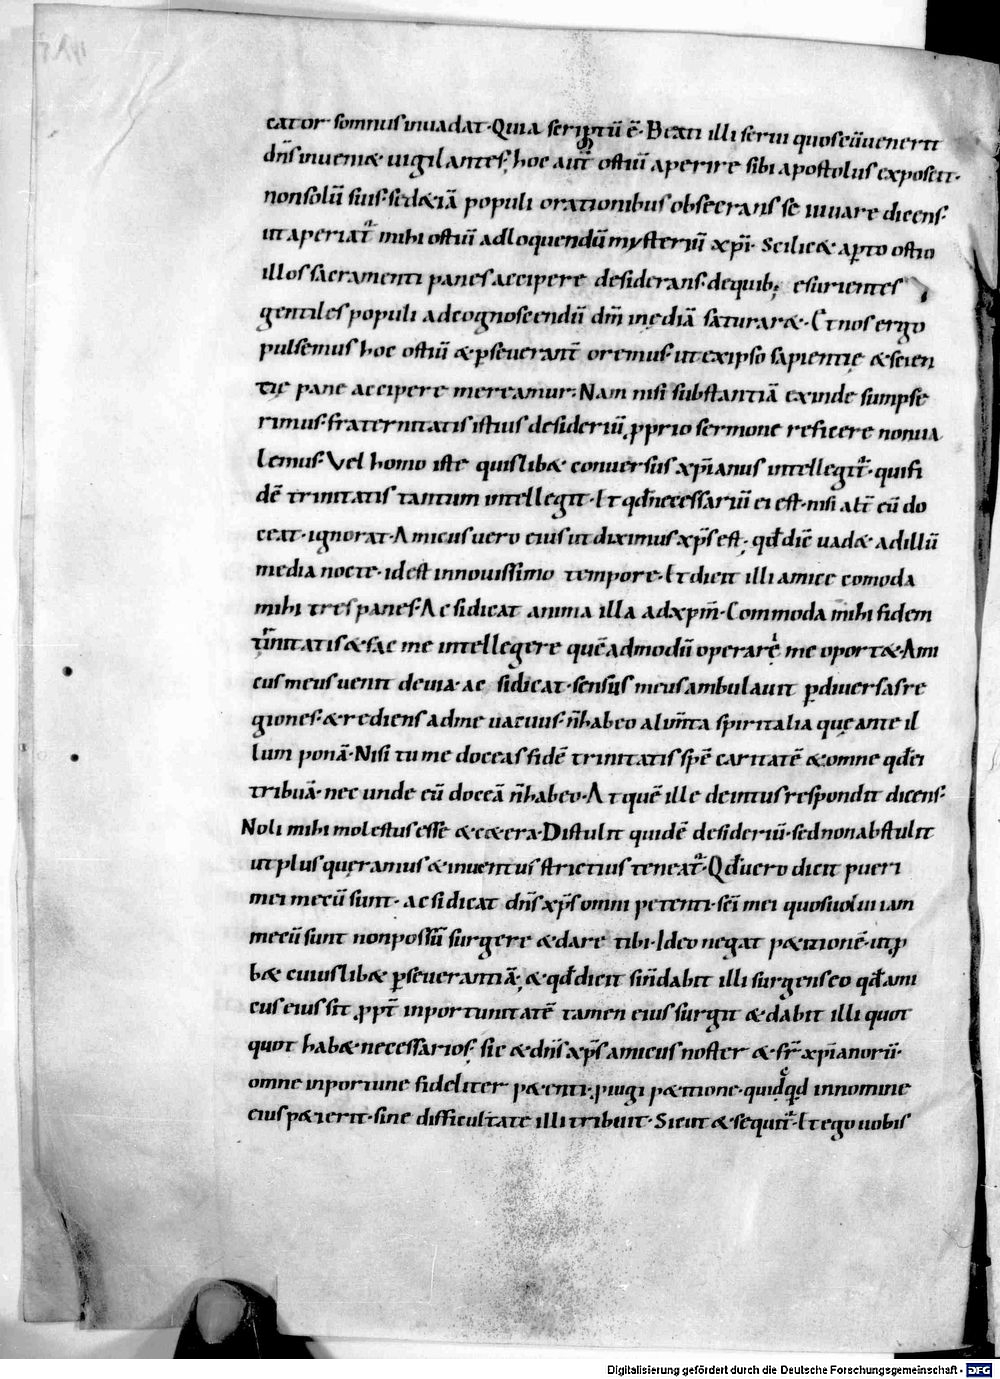 cator somnus inuadat· Quia scriptū ē· Beati illi serui quos cū uenerit
dn̄s inuenit uigilantes; hoc aut̄ ostiū aperire sibi apostolus exposcit·
non solū suis· sed &iā populi orationibus obsecrans se iuuare dicens·
ut aperiat᷑ mihi ostiū ad loquendū mysteriū xp̄i· Scilic& aꝑto ostio
illos sacramenti panes accipere desiderans· de quib; esurientes
gentiles populi ad cognoscendū dm̄ inędiā saturar&· Et nos ergo
pulsemus hoc ostiū & ꝑseuerant̄ oremus· ut ex ipso sapientię & scien
tię pane accipere mereamur; Nam nisi substantiā exinde sumpse
rimus· fraternitatis istius desideriū ꝓprio sermone reficere non ua
lemus· Vel homo iste quislib& conuersus xp̄ianus intellegit᷑· qui fi
dē trinitatis tantum intellegit· Et qđ necessariū ei est· nisi alt̄ eū do
ceat· ignorat· Amicus uero eius ut diximus xp̄s est· qđ dic̄ uad& ad illū
media nocte· id est in nouissimo tempore· Et dicit illi amice comoda
mihi tres panes· Ac si dicat anima illa ad xp̄m· Commoda mihi fidem
trinitatis & fac me intellegere quēadmodū operare me oport&· Ami
cus meus uenit de uia· ac si dicat· sensus meus ambulauit ꝑ diuersas re
giones· & rediens ad me uacuus· n̄ habeo alim̄ta spiritalia quę ante il
lum ponā· Nisi tu me doceas fidē trinitatis spē caritatē & omne qđ ei
tribuā· nec unde eū doceā n̄ habeo· At quē ille deintus respondit dicens·
Noli mihi molestus esse & c&era· Distulit quidē desideriū· sed non abstulit
ut plus quęramus & inuentus strictius teneat᷑· Qđ uero dicit pueri
mei mecū sunt· ac si dicat dn̄s xp̄s omni petenti· sc̄i mei quos uolui iam
mecū sunt non possū surgere & dare tibi· Ideo negat p&itionē· ut ꝓ
b& cuiuslib& ꝑseuerantiā; & qđ dicit si n̄ dabit illi surgens eo qđ ami
cus eius sit ꝓpt̄ inportunitatē tamen eius surgit & dabit illi quot
quot hab& necessarios; sic & dn̄s xp̄s amicus noster & fr̄ xp̄ianorū·
omne inportune fideliter p&enti ꝓ iugi p&itione· quidqd in nomine
eius p&ierit· sine difficultate illi tribuit· Sicut & sequit᷑· Et ego uobis
Digitalisierung gefördert durch die Deutsche Forschungsgemeinschaft - DFG